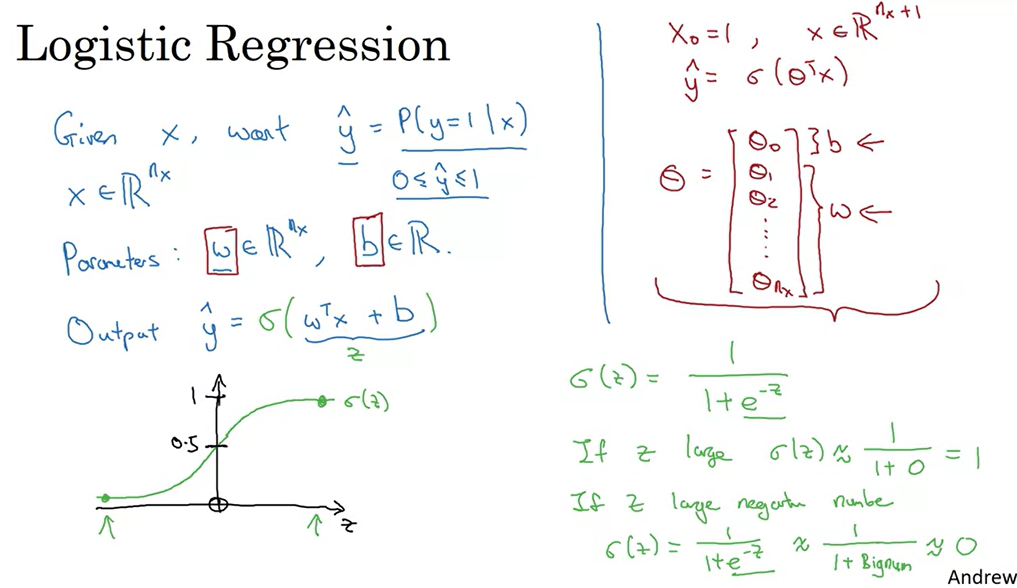 Logistic Regression
Given x, want ŷ = P(y=1|x)
0 ≤ ŷ ≤ 1
x ∈ ℝ^{n_x}
Parameters: w ∈ ℝ^{n_x}, b ∈ ℝ.
Output ŷ = σ(wᵀx + b)
z
1
σ(z)
0.5
z
X₀ = 1, x ∈ ℝ^{n_x+1}
ŷ = σ(θᵀx)
θ = [θ₀ } b ←
θ₁
θ₂
⋮
θ_{n_x}] } w ←
σ(z) = 1 / (1 + e^{-z})
If z large σ(z) ≈ 1 / (1 + 0) = 1
If z large negative number
σ(z) = 1 / (1 + e^{-z}) ≈ 1 / (1 + Bignum) ≈ 0
Andrew